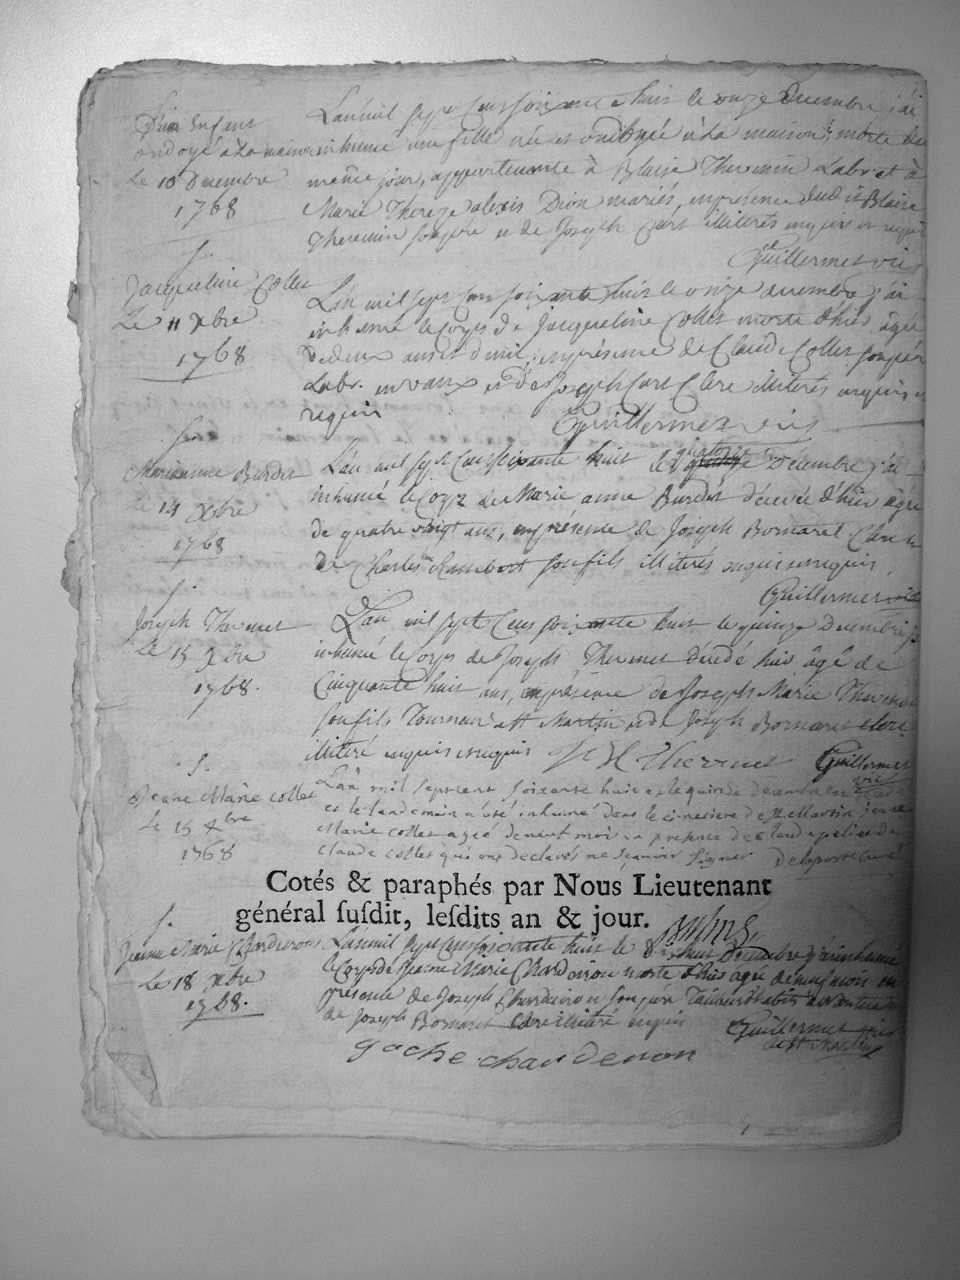 D'un Enfant
ondoyé a la maison
Le 10 decembre
1768
L'an mil sept cens soixante e huit le onze Decembre j'ai
inhumé une fille née et ondoyée à la maison, morte le
même jour, appartenante à Blaise Thevenin Labr et à
Marie Thereze alexis Dion mariés, en presence dudit Blaise
Thevenin son pere et de Joseph illiterés enquis et requis
Guillermet vic
Jacqueline Collet
Le 11 Xbre
1768
L'an mil sept cens soixante huit le onze decembre j'ai
inhumé le corps de Jacqueline Collet morte d'hier âgée
de deux ans et demi, en présence de Claude Collet son pére
Labr. en vaux et de Joseph Clerc illiterés enquis et
requis
Guillermet vic
Marianne Burdet
Le 14 Xbre
1768
L'an mil sept cens soixante huit le quatorze Decembre j'ai
inhumé le corps de Marie anne Burdet décédée d'hier âgée
de quatre vingt ans, en présence de Joseph Bornarel Clerc
de Charles Chambort son fils illiterés enquis et requis
Guillermet vic
Joseph Thevenet
Le 15 Xbre
1768.
L'an mil sept Cens soixante huit le quinze Decembre j'
inhumé le Corps de Joseph Thevenet décédé hier âgé de
Cinquante huit ans, en présence de Joseph Marie Thevenet
son fils Tourneur a St Martin et de Joseph Bornarel clerc
illitéré enquis et requis J M Thevenet Guillermet
vic
Jeane Marie collet
Le 15 Xbre
1768
L'an mil sept cent soixante huit et le quinze decembre est
et le landemain a été inhumé dans le cimetiere de St Martin Jeane
Marie collet ageé de neuf mois en presence de claude
Claude collet qui ont declarés ne scavoir signer Delaporte curé
Cotés & paraphés par Nous Lieutenant
général susdit, lesdits an & jour.
Jeanne Marie Chardenon
Le 18 Xbre
1768.
L'an mil sept cens soixante huit le dix huit Decembre j'ai inhumé
le Corps de Jeanne Marie Chardenon morte d'hier agée de neuf mois en
presence de Joseph Chardenon son pére
de Joseph Bornarel clerc illitéré enquis Guillermet vic
de St Martin
gache chardenon